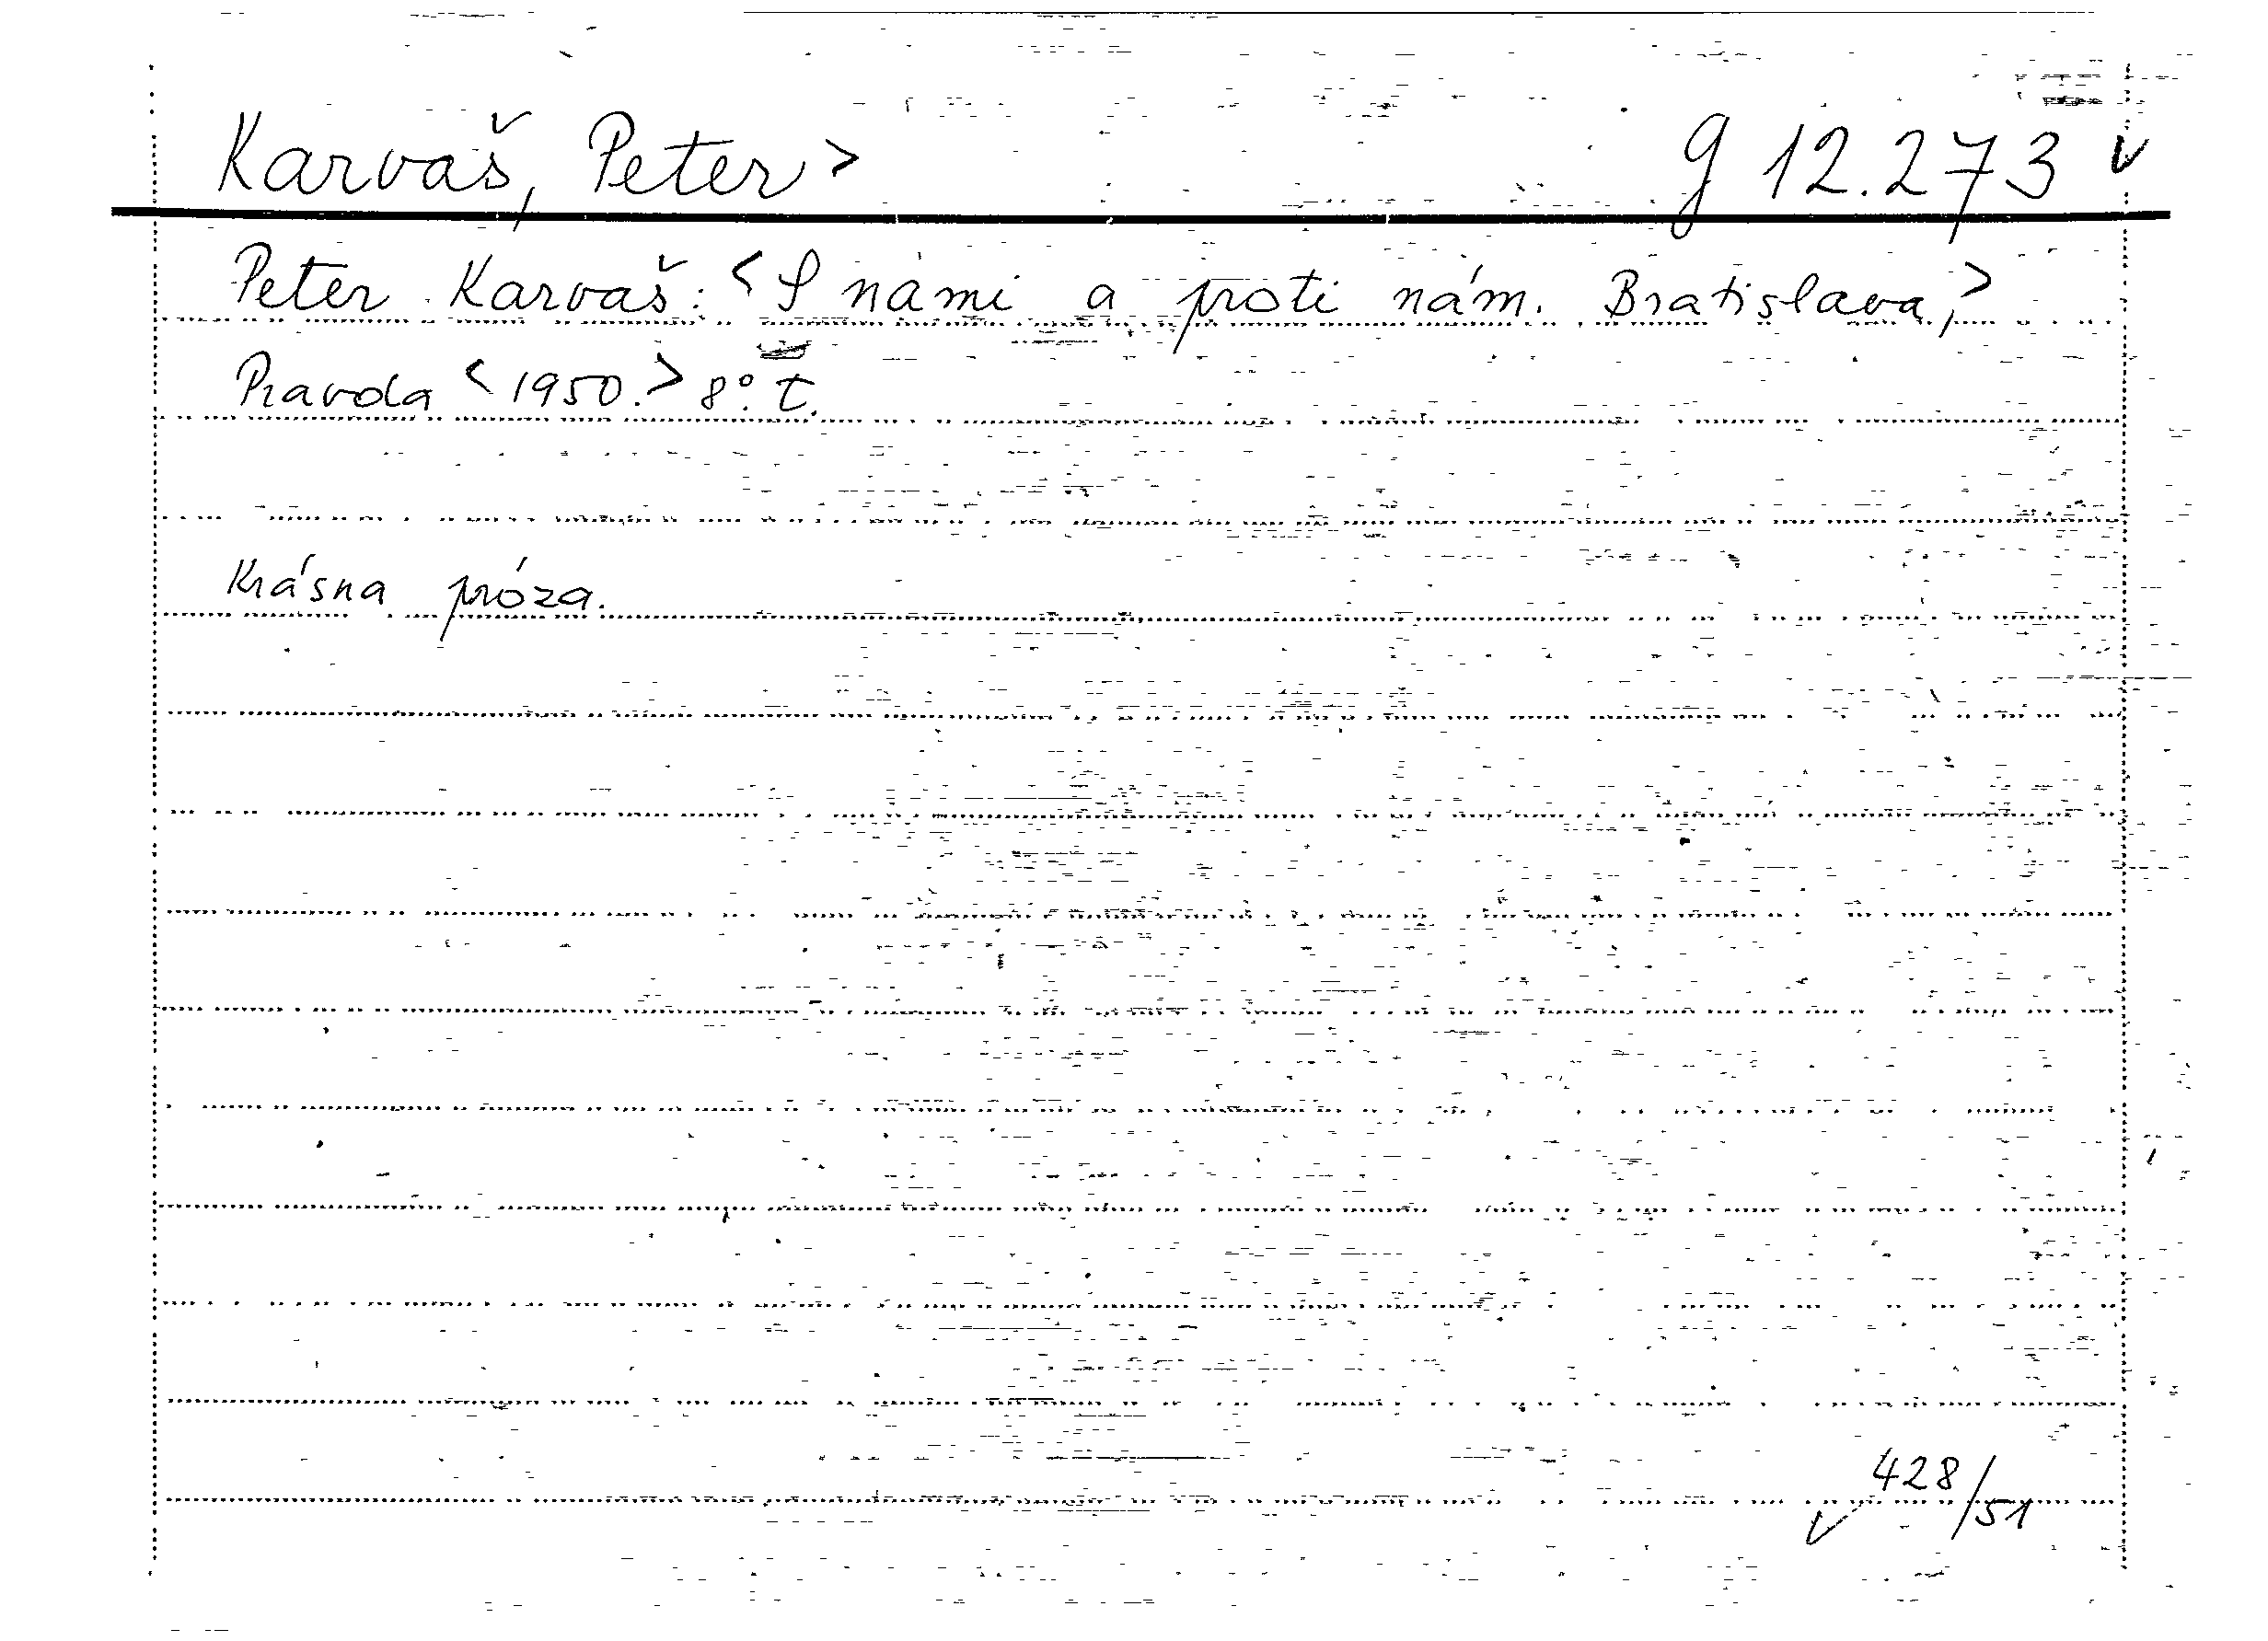 Karvaš, Peter > g 12.273 v
Peter Karvaš: < S nami a proti nám. Bratislava, >
Pravda < 1950. > 8°. t.
Krásna próza.
428/51